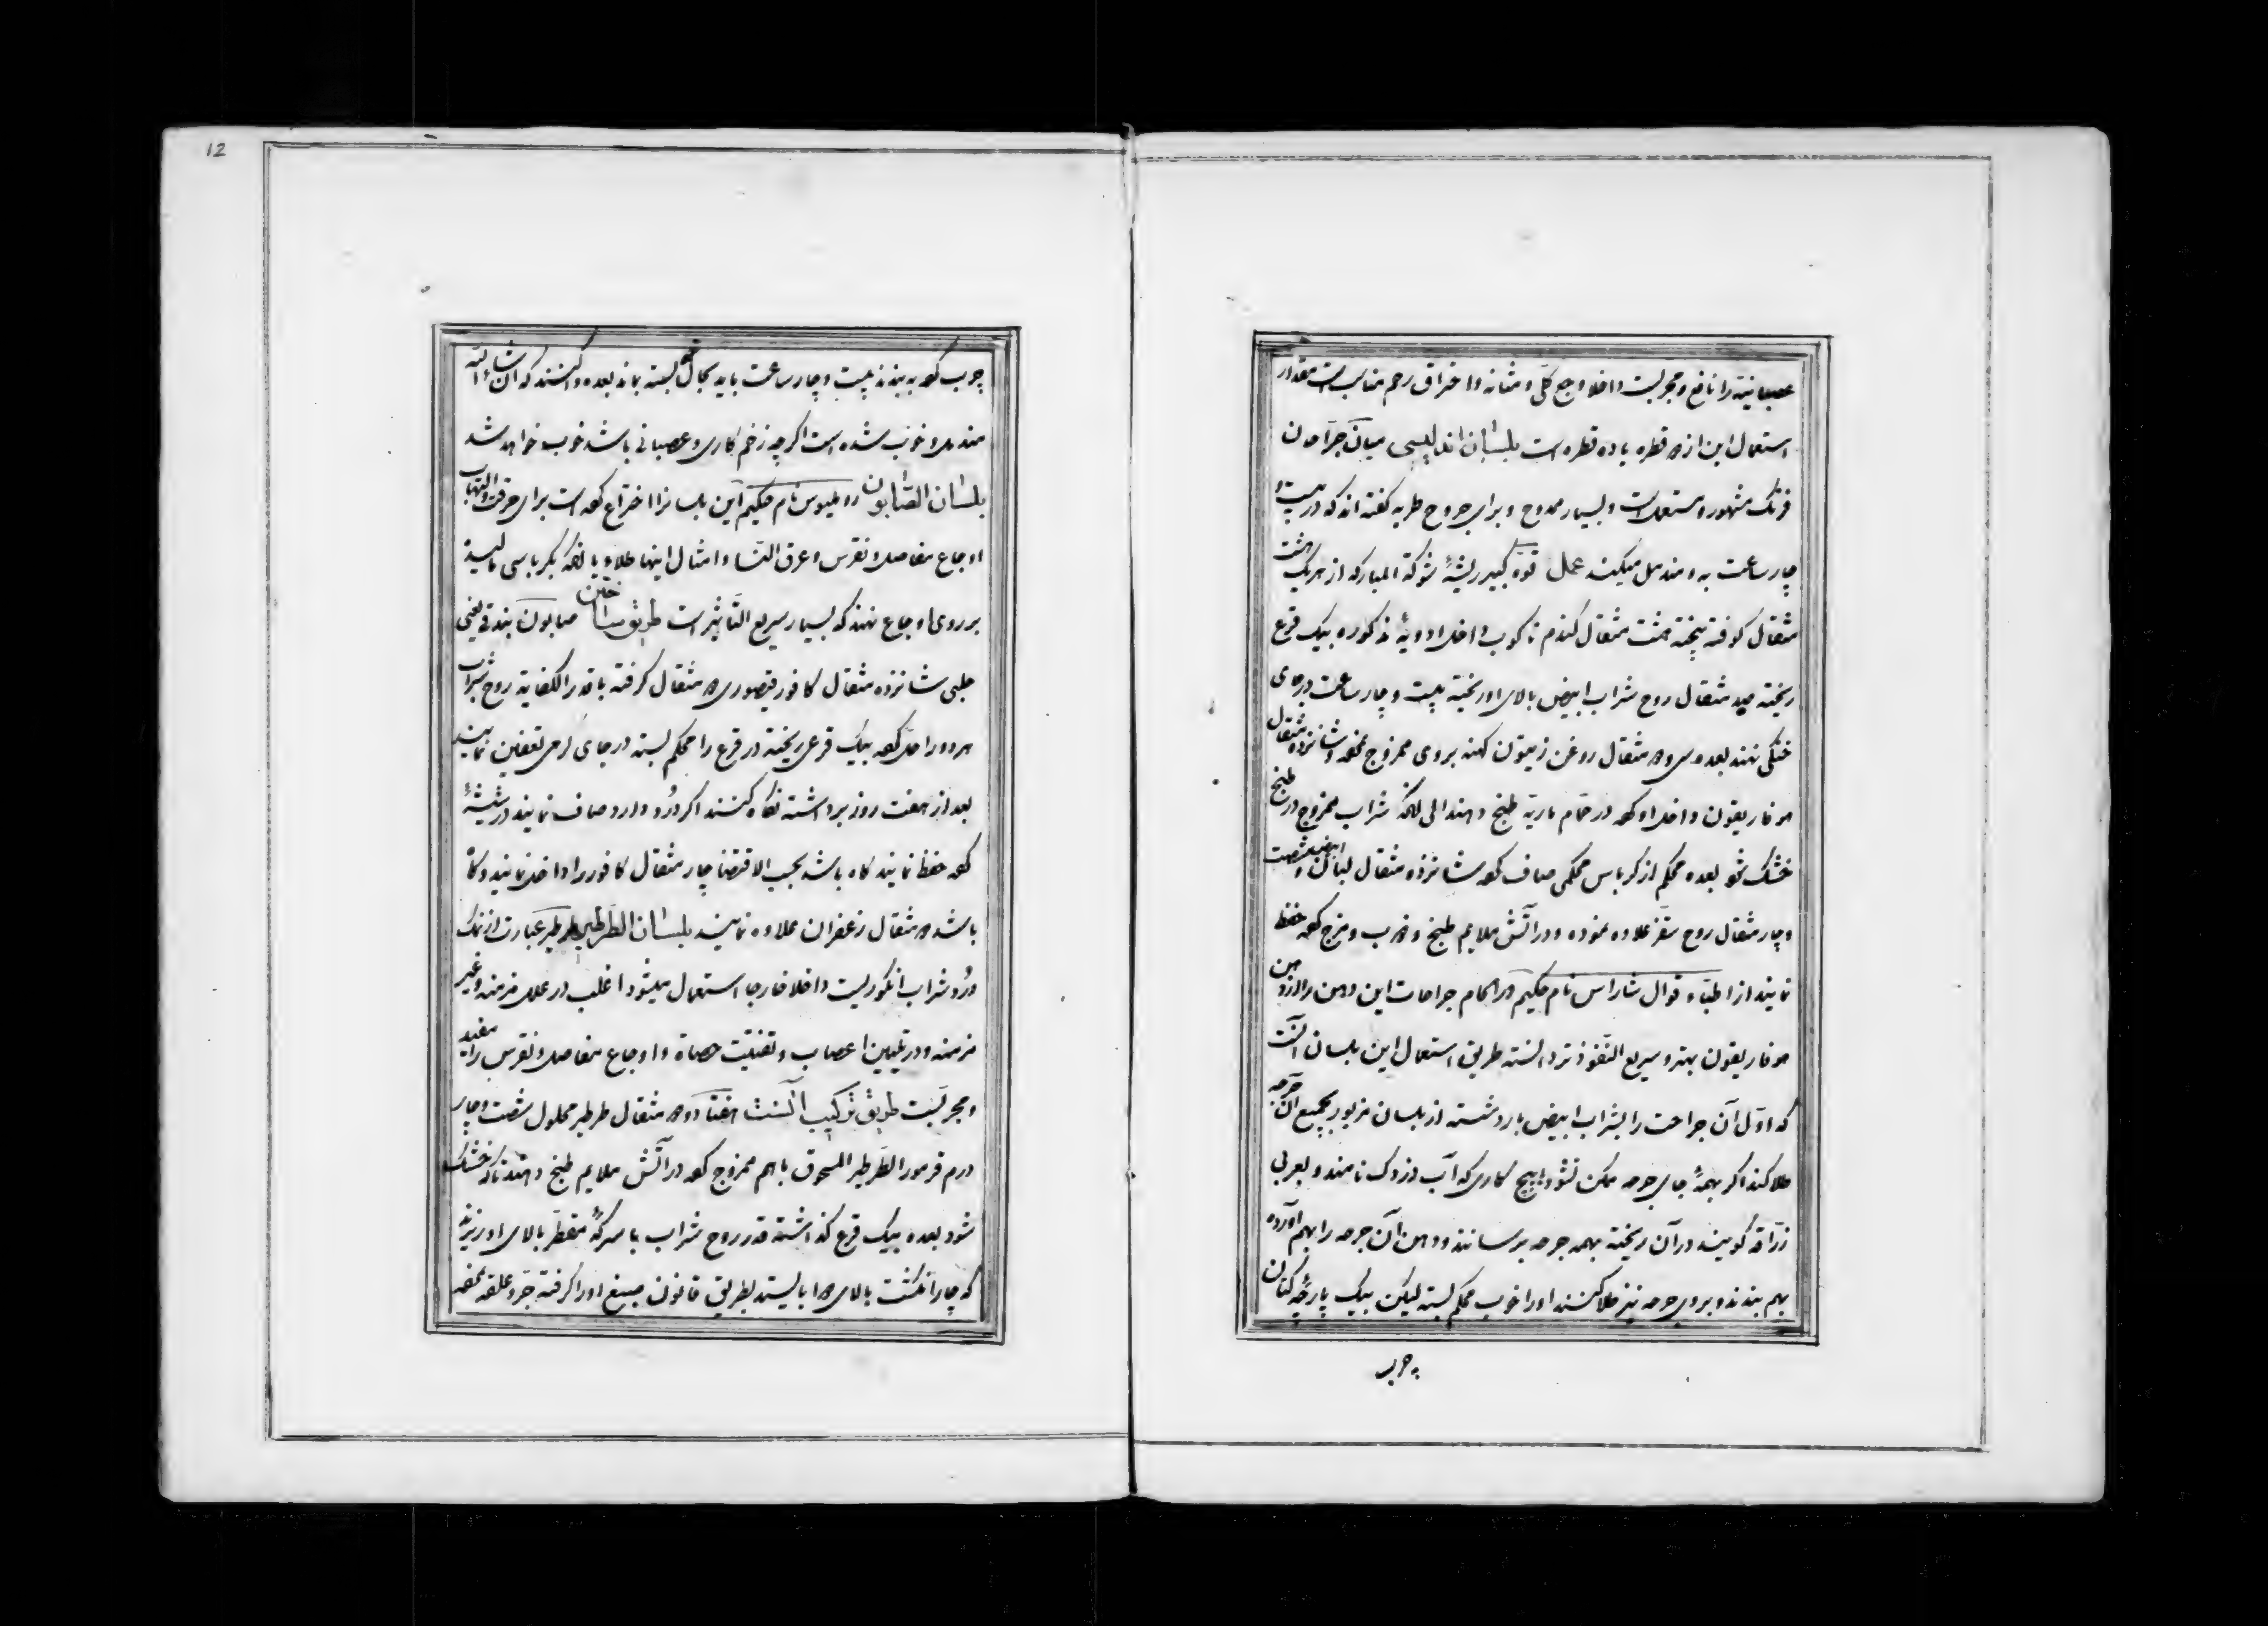 عصبانیة را نافع و مجربست داخلا وجع کلی و مثانه و احتراق رحم مناسب است مقدار
استعمال این از قطره با ده قطره است بلسان اندلیسی میان جراحان
فرنک مشهور و مستعملست و بسیار ممدوح و برای جروح طریه کفته اند که در بیست و
چار ساعت به و مندمل میکند عمل قوه کبیر ریشهٔ شوکة المبارکه از هریک هشت
مثقال کوفته پخته هشت مثقال کندم ناکوب داخل ادویهٔ مذکوره بیک قرع
ریخته صد مثقال روح شراب ابیض بالای او ریخته بیست و چار ساعت در جای
خنکی نهند بعده سی و مثقال روغن زیتون کهنه بروی ممزوج نموده و شانزده مثقال
هوفاریقون داخل او کرده در حمام ماریه طبخ دهند الی انکه شراب ممزوج در طبخ
خشک شود بعده محکم از کرباس محکمی صاف کرده شانزده مثقال لبان ابیض و شصت
و چار مثقال روح سقز علاوه نموده و در آتش ملایم طبخ و ضرب و مزج کرده حفظ
نمایند از اطباء قوال شاراس نام حکیم در التحام جراحات این دهن را از دهن
هوفاریقون بهتر و سریع النفوذ تر دانسته طریق استعمال این بلسان آنست
که اول آن جراحت را بشراب ابیض بارد شسته از بلسان مزبور بجمیع آن جرحه
طلا کند اکر بهمهٔ جای جرحه ممکن نشود بهیچ کاری که آب دزدک نامند و بعربی
زراقه کویند در آن ریخته بهمه جرحه برسانند و دهن آن جرحه را بهم آورده
بهم بندند و بروی جرحه نیز طلا کنند او را خوب محکم بسته لیکن بیک پارچهٔ کتان
چرب
12
چرب کرده به بندند بیست و چار ساعت باید بحال خود بسته بماند بعده وا کنند که ان شاء الله
مندمل و خوب شده است اکرچه زخم کاری و عصبانی باشد خوب خواهد شد
بلسان الصابون رولمیوس نام حکیم این بلسانرا اختراع کرده است برای حرقت و التهاب
اوجاع مفاصل و نقرس و عرق النسا و امثال اینها طلاء یا انکه بکرباسی مالیده
بر روی اوجاع نهند که بسیار سریع التأثیر است طریق ساختن صابون بندقی یعنی
حلبی شانزده مثقال کافور قیصوری مثقال کرفته با قدر الکفایة روح شراب
هردو را حل کرده بیک قرعی ریخته در قرع را محکم بسته در جای کرمی تعفین نمایند
بعد از هفت روز برداشته نکاه کنند اکر درد دارد صاف نمایند در شیشهٔ
کرده حفظ نمایند کاه باشد بحسب الاقتضا چار مثقال کافور را داخل نمایند و کاه
باشد مثقال زعفران علاوه نمایند بلسان الطرطیر طرطیر عبارت از نمک
درد شراب انکوریست داخلا خارجا استعمال میشود اغلب در علل مزمنه و غیر
مزمنه و در تلیین اعصاب و تفتیت حصاة و اوجاع مفاصل و نقرس را مفید
و مجربست طریق ترکیب آنست هفتاد و مثقال طرطیر محلول شصت و چار
درم قرمور الطرطیر المسحوق باهم ممزوج کرده در آتش ملایم طبخ دهند تا که خشک
شود بعده بیک قرع کذاشته قدر روح شراب با سرکهٔ مقطر بالای او ریزند
که چار انکشت بالای ایستد بطریق قانون صبغ او را کرفته جرد علقه نمفه